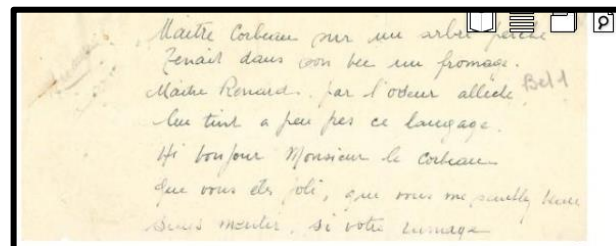 Maitre Corbeau sur un arbre perché
Tenait dans son bec un fromage.
Maitre Renard, par l'odeur alléché
Bel 1
Lui tint a peu pres ce langage.
Hi bonjour Monsieur le Corbeau
que vous ets joli, que vous me semblez beau
Sans mentir, si votre ramage